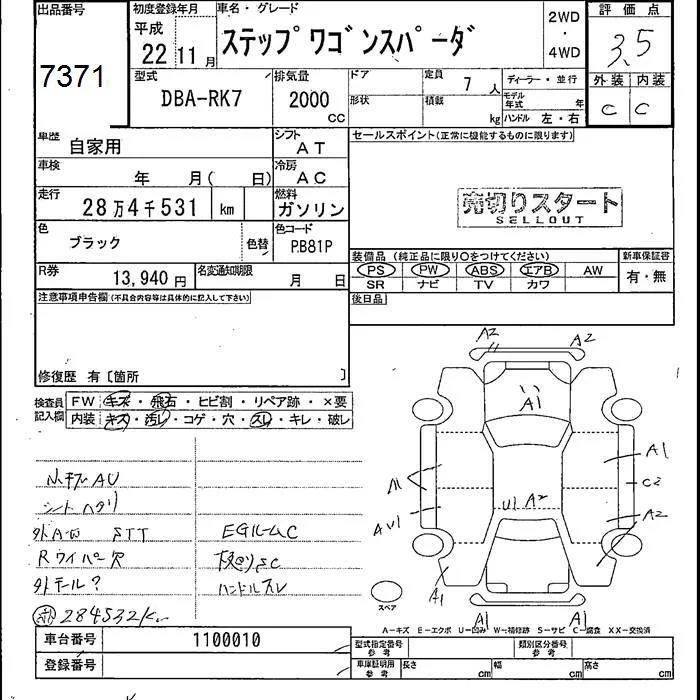 出品番号
7371
初度登録年月
平成
22 11月
車名・グレード
ステップワゴンスパーダ
2WD
・
4WD
評価点
3.5
外装 内装
C C
型式
DBA-RK7
排気量
2000
CC
ドア
形状
定員
7人
積載
kg
ディーラー・並行
モデル
年式 年
ハンドル 左・右
車歴
自家用
シフト
AT
車検
年 月( 日)
冷房
AC
走行
28万4千531 km
燃料
ガソリン
色
ブラック
色替
色コード
PB81P
R券
13,940円
名変通知期限
月 日
セールスポイント(正常に機能するものに限ります)
売切りスタート
SELLOUT
装備品 (純正品に限り○をつけてください)
新車保証書
PS PW ABS エアB AW
SR ナビ TV カワ
有・無
後日品
注意事項申告欄(不具合内容等は具体的に記入して下さい)
修復歴 有〔箇所 〕
検査員
記入欄
FW キズ・飛石・ヒビ割・リペア跡・×要
内装 キズ・汚レ・コゲ・穴・スレ・キレ・破レ
AU
シート
外 STT
Rワイパー欠
外テール?
284532K
EGルームC
下廻りSC
ハンドルスレ
A2
A2
A1
A1
C2
A2
U1 A2
A1
AU1
A1
A1
A1
スペア
A─キズ E─エクボ U─凹み W─補修跡 S─サビ C─腐食 XX─交換済
車台番号
1100010
登録番号
型式指定番号
参考
類別区分番号
参考
車庫証明用
参考
長さ cm
幅 cm
高さ cm